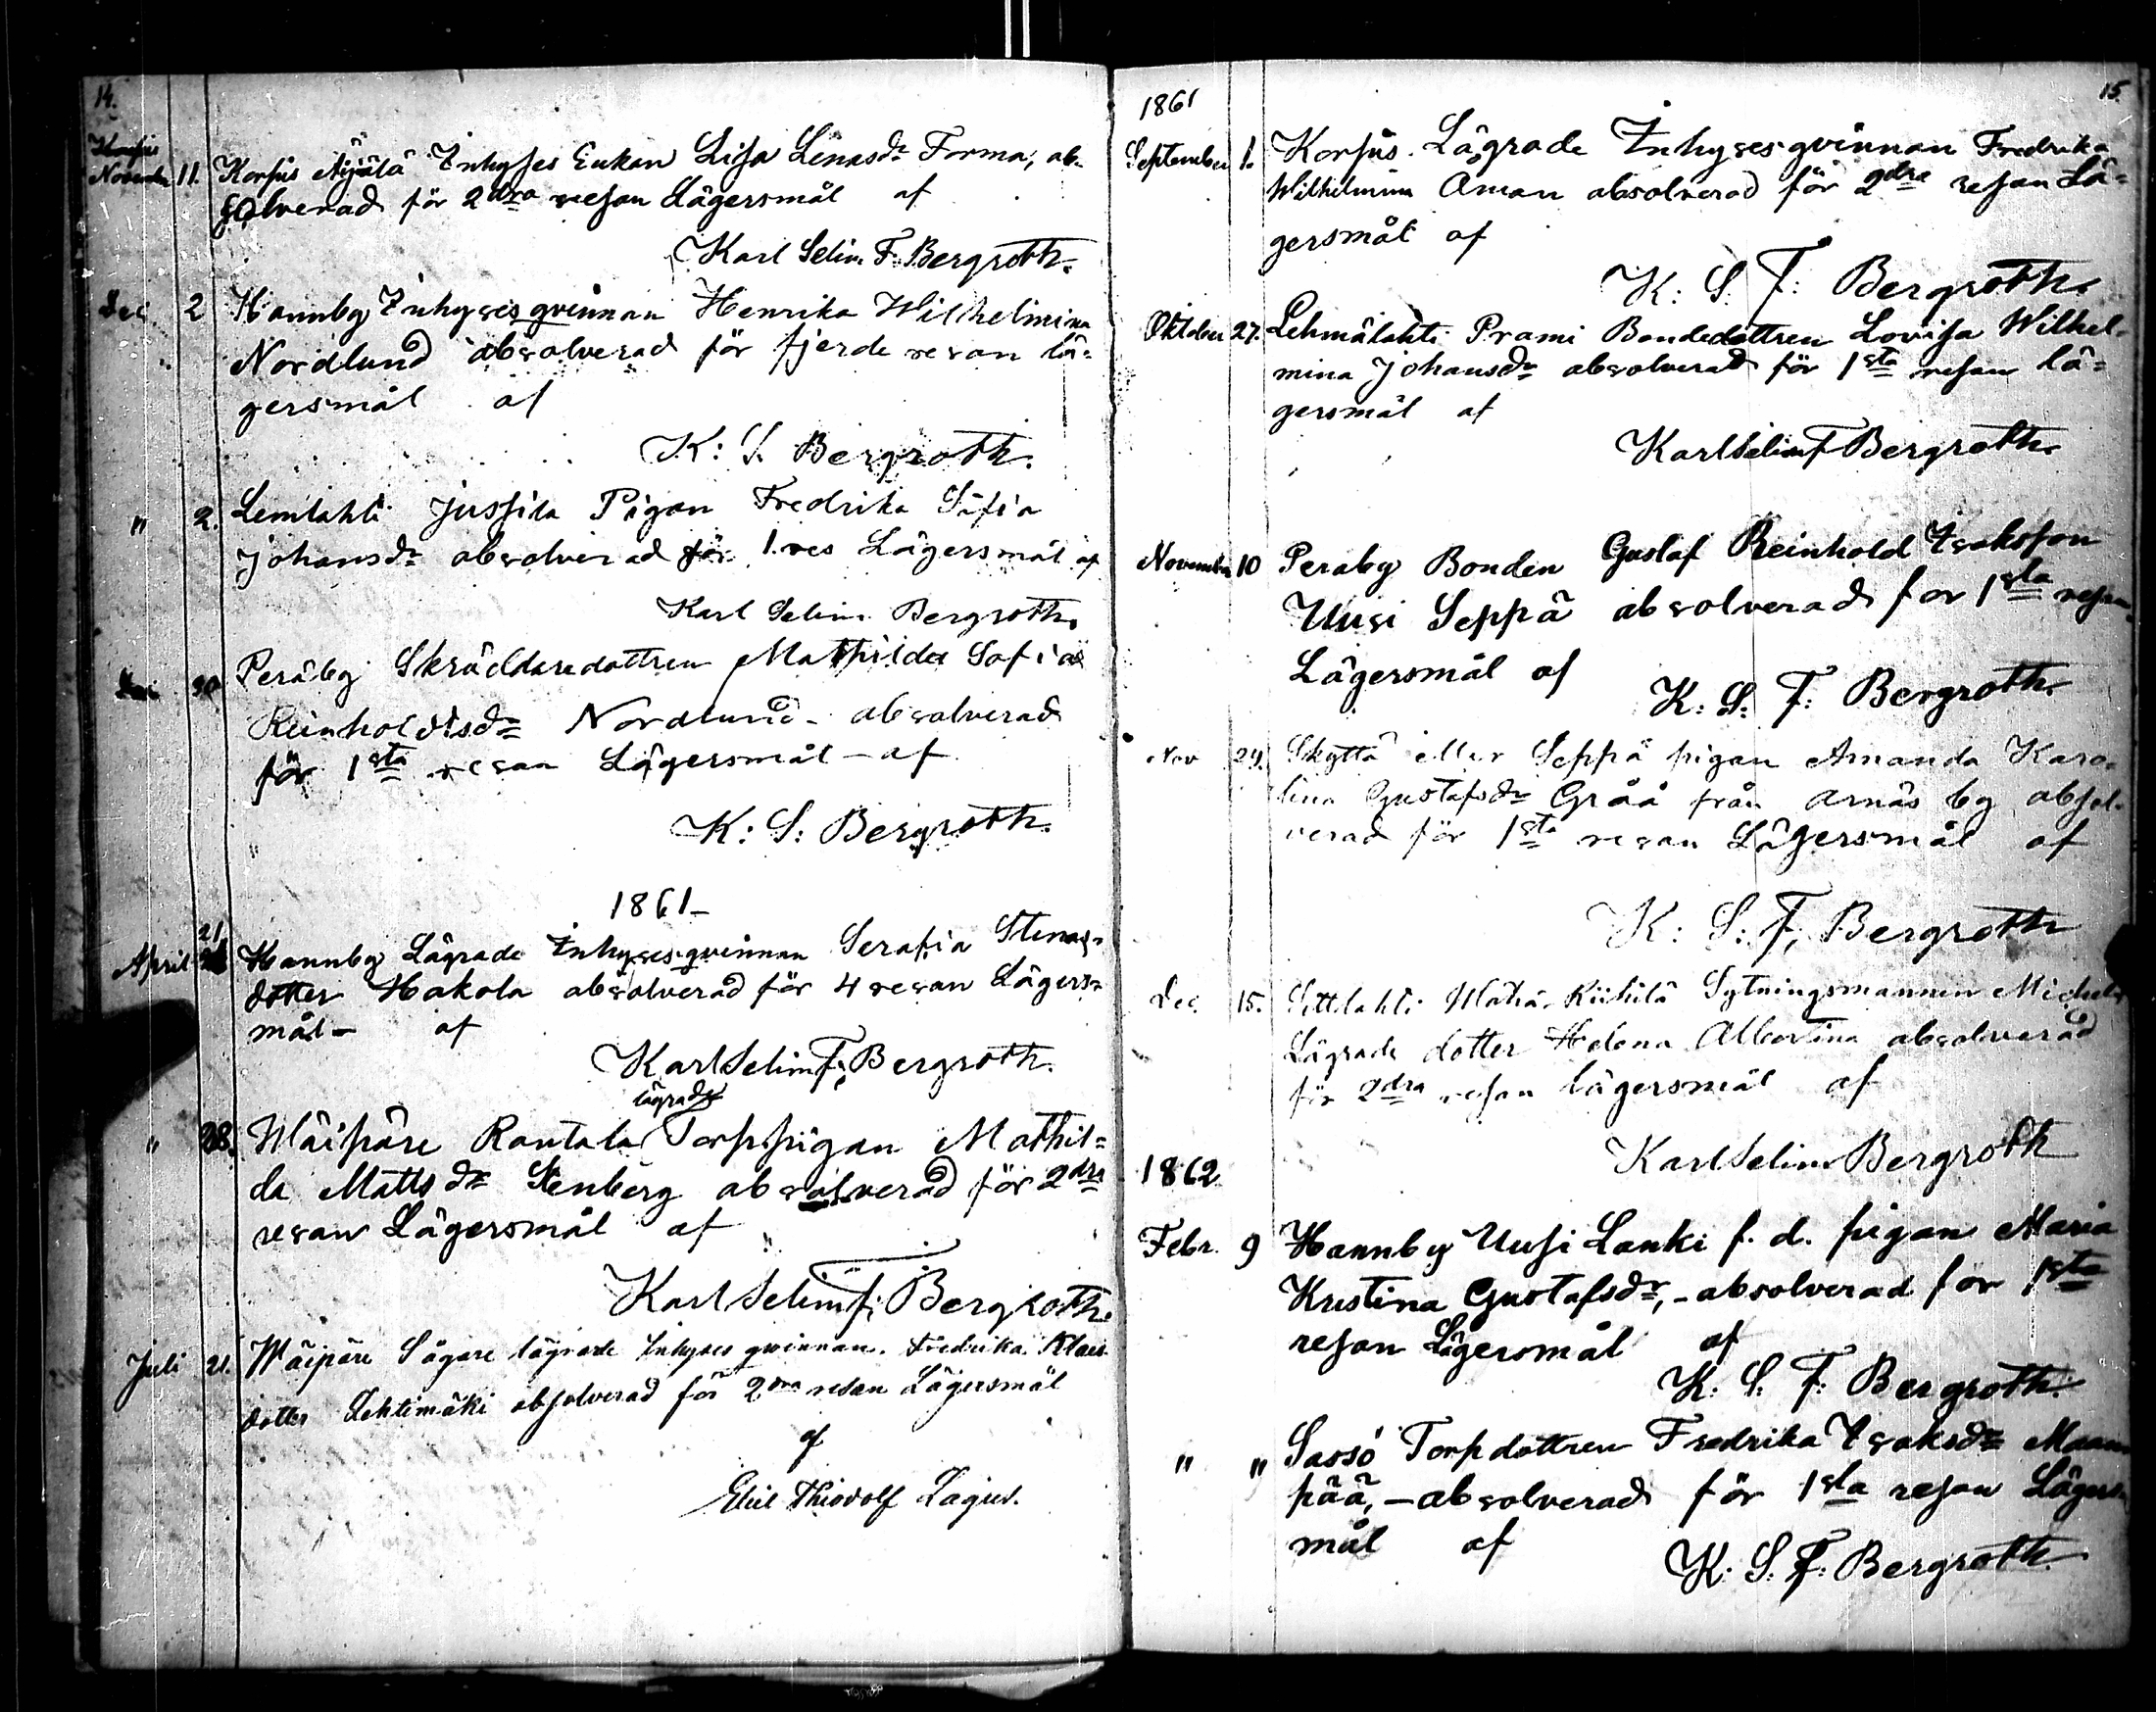 14.
November 11. Korsus Äijälä Inhyses Enkan Lisa Lenasdr Forma, ab-
solverad för 2dra resan Lägersmål af
Karl Selim F. Bergroth.
Dec 2 Hannby Inhyses qvinnan Henrika Wilhelmina
Nordlund absolverad för fjerde resan lä-
gersmål af
K: S. Bergroth.
" 2. Lemlahti Jussila Pigan Fredrika Sofia
Johansdr absolverad för 1. res Lägersmål af
Karl Selim Bergroth.
30 Peräby Skräddaredottren Mathilda Sofia
Reinholdsdr Nordlund - absolverad
för 1sta resan Lägersmål - af
K: S: Bergroth.
1861-
April 21 Hannby Lägrade Inhysesqvinnan Serafia Stenas-
dotter Hakola absolverad för 4 resan Lägers-
mål - af
Karl Selim F; Bergroth.
lägrade
" 28. Wäipäre Rantala Torppigan Mathil-
da Mattsdr Stenberg absolverad för 2dra
resan Lägersmål af
Karl Selim F; Bergroth.
Juli 21. Wäipäre Sågare lägrade Inhyses qwinnan. Fredrika Klas
dotter Lehtimäki absolverad för 2dra resan Lägersmål
af
Eliel Thiodolf Lagus.
15.
1861
September 1. Korsus. Lägrade Inhysesqvinnan Fredrika
Wilhelmina Aman absolverad för 2dra resan Lä-
gersmål af
K: S. F: Bergroth.
Oktober 27. Lehmälahti Prami Bondedottren Lovisa Wilhel-
mina Johansdr absolverad för 1sta resan lä-
gersmål af
Karl Selim F Bergroth.
November 10 Peraby Bonden Gustaf Reinhold Isaksson
Uusi Seppä absolverad for 1sta resan
Lägersmål af
K: S: F: Bergroth.
Nov 24. Skyttä eller Seppä pigan Amanda Karo-
lina Gustafsdr Gråå från Arnäs by absol-
verad för 1sta resan Lägersmål af
K: S: F; Bergroth
Dec. 15. Riihilä Sytningsmannen Michels
Lägrade dotter Helena Albertina absolverad
för 2dra resan lägersmål af
Karl Selim Bergroth
1862.
Febr. 9 Hannby Uusi Lanki f. d. pigan Maria
Kristina Gustafsdr, - absolverad för 1sta
resan Lägersmål af
K: S. F: Bergroth.
" " Sassö Torpdottren Fredrika Isaksdr Maan
pää, - absolverad för 1sta resan Lägers-
mål af
K: S. F: Bergroth.